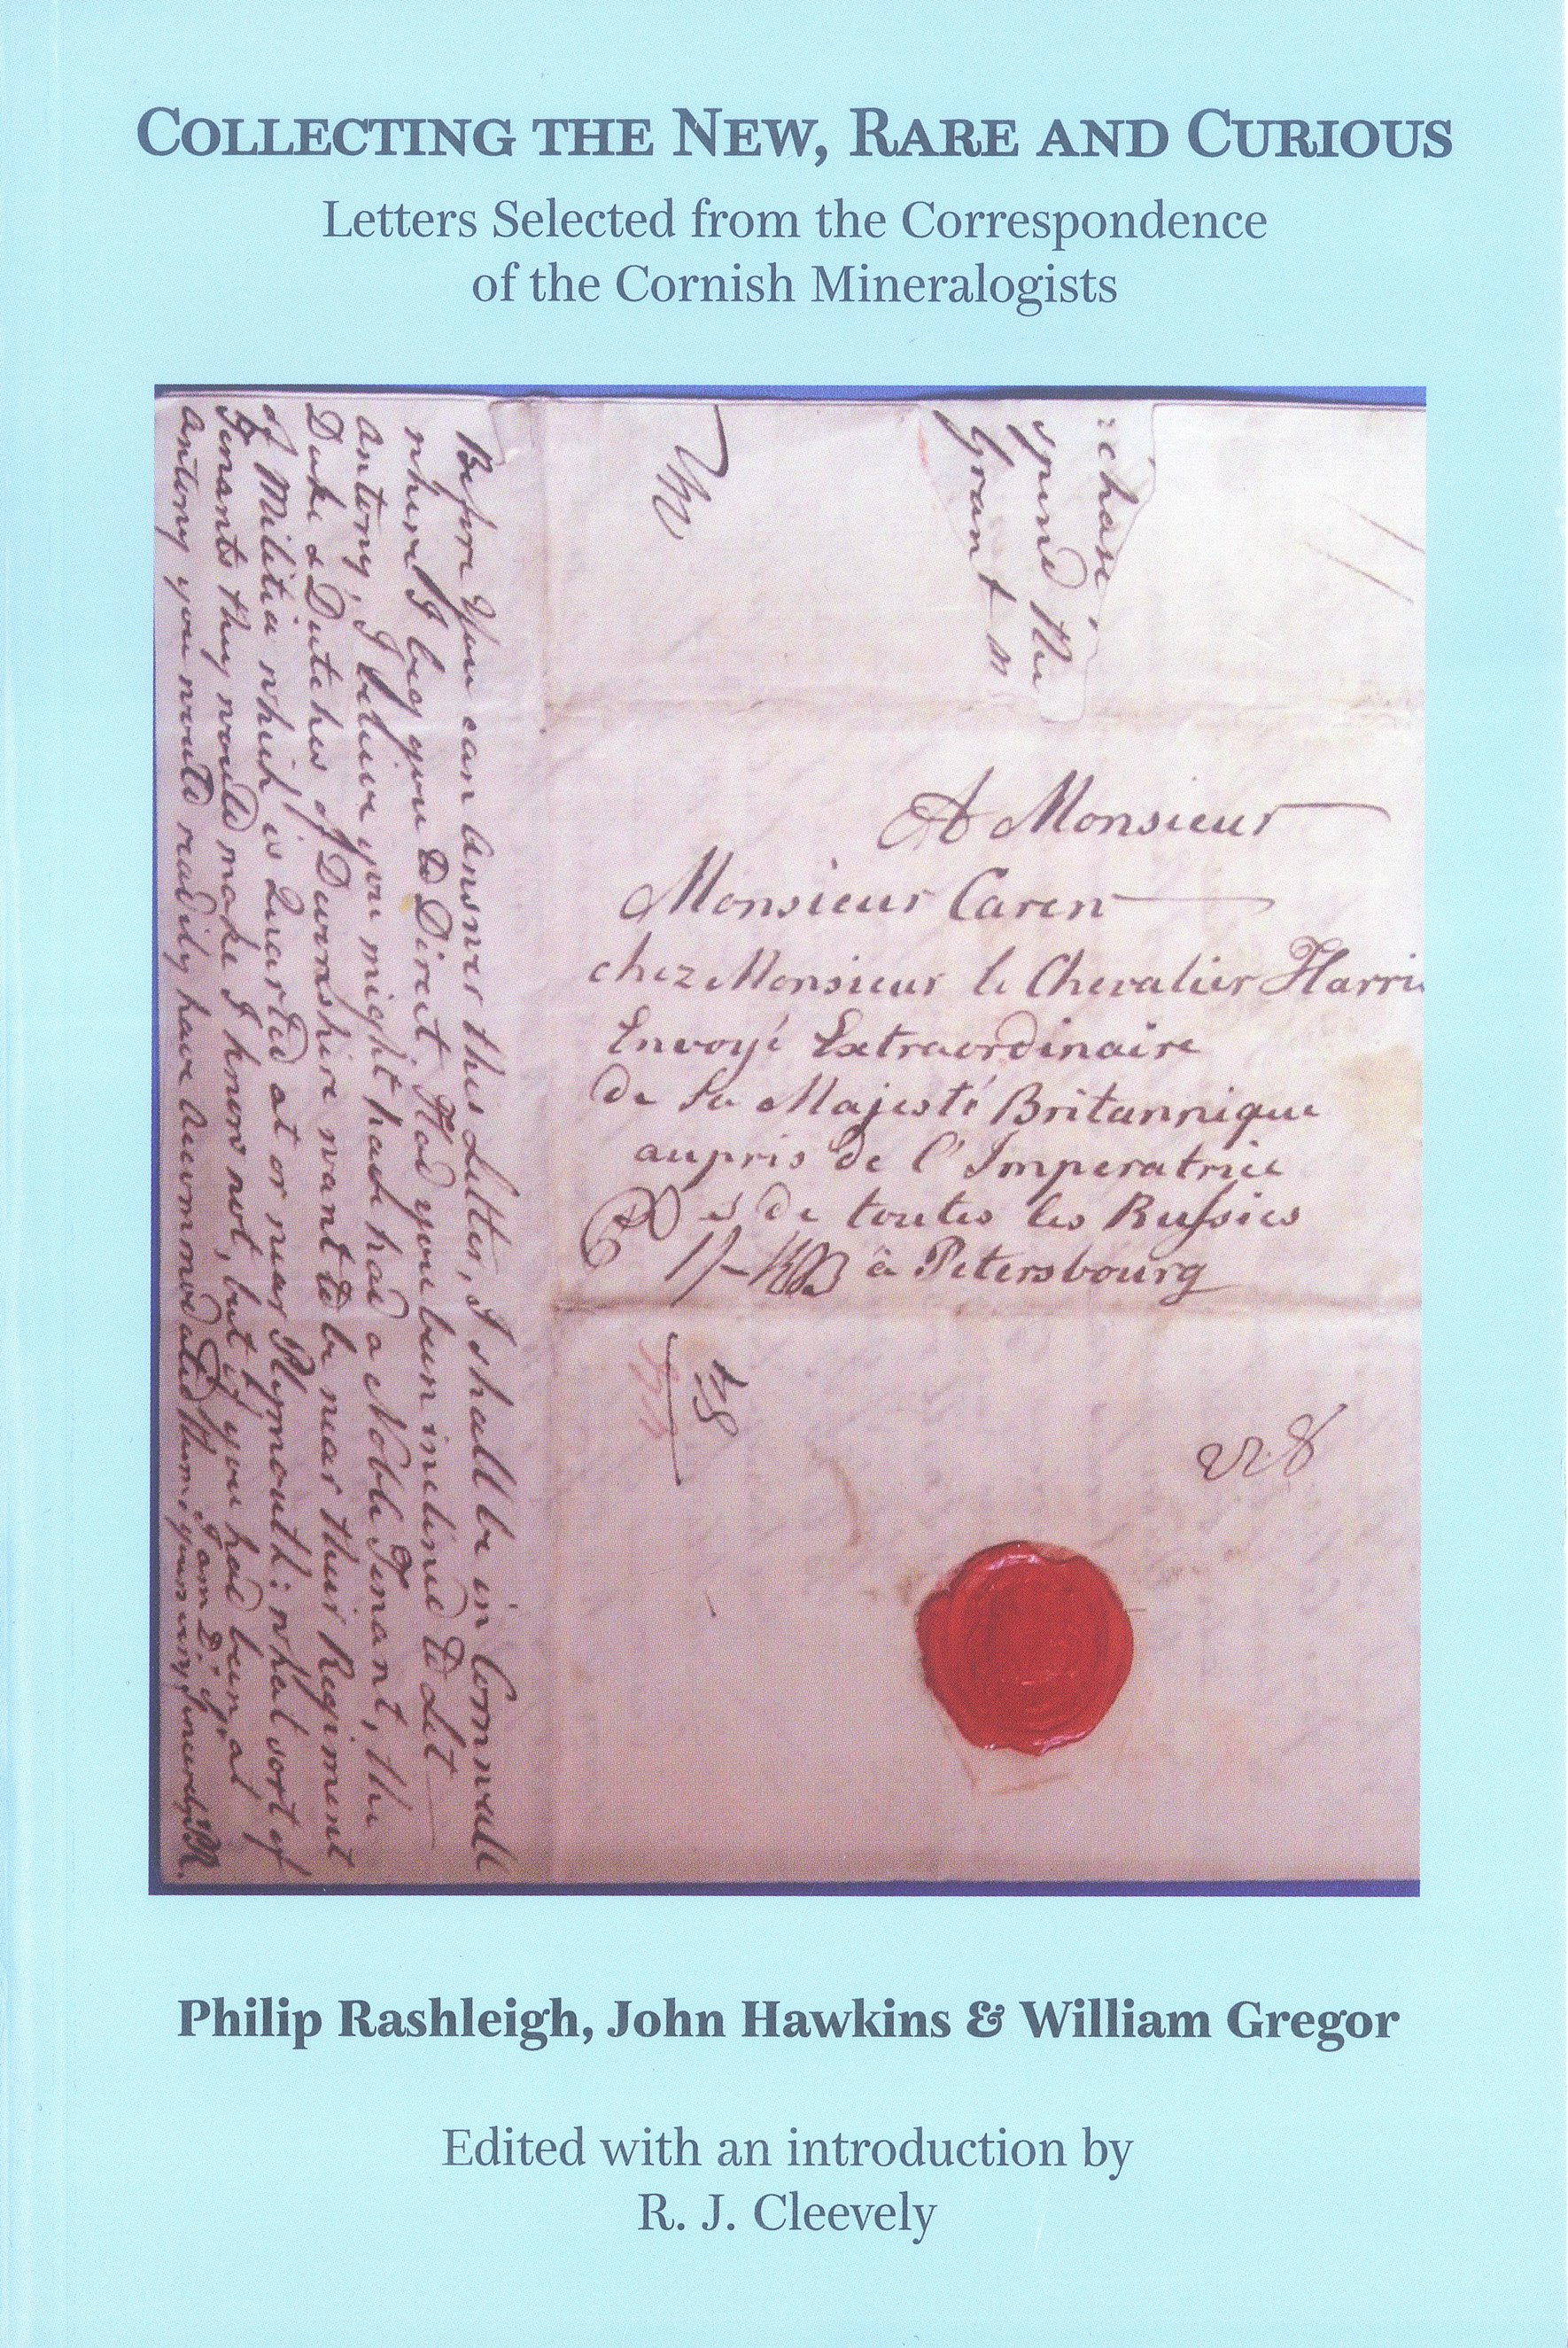 COLLECTING THE NEW, RARE AND CURIOUS
Letters Selected from the Correspondence
of the Cornish Mineralogists
Before You can answer this Letter, I shall be in Cornwall
where I beg you to Direct. Had you been inclined to Let
Antony, I believe you might have had a Noble Tenant, the
Duke & Dutchess of Devonshire want to be near their Regiment
of Militia which is Quarted at or near Plymouth: what sort of
Tenants they would make I know not, but if you had been at
Antony you would readily have accommodated them.
yours very sincerely
:chase,
spend the
Grant
A Monsieur
Monsieur Caren
chez Monsieur le Chevalier Harri
Envoyé Extraordinaire
de Sa Majesté Britannique
aupris de l'Imperatrice
de toutes les Russies
à Petersbourg
228
Philip Rashleigh, John Hawkins & William Gregor
Edited with an introduction by
R. J. Cleevely